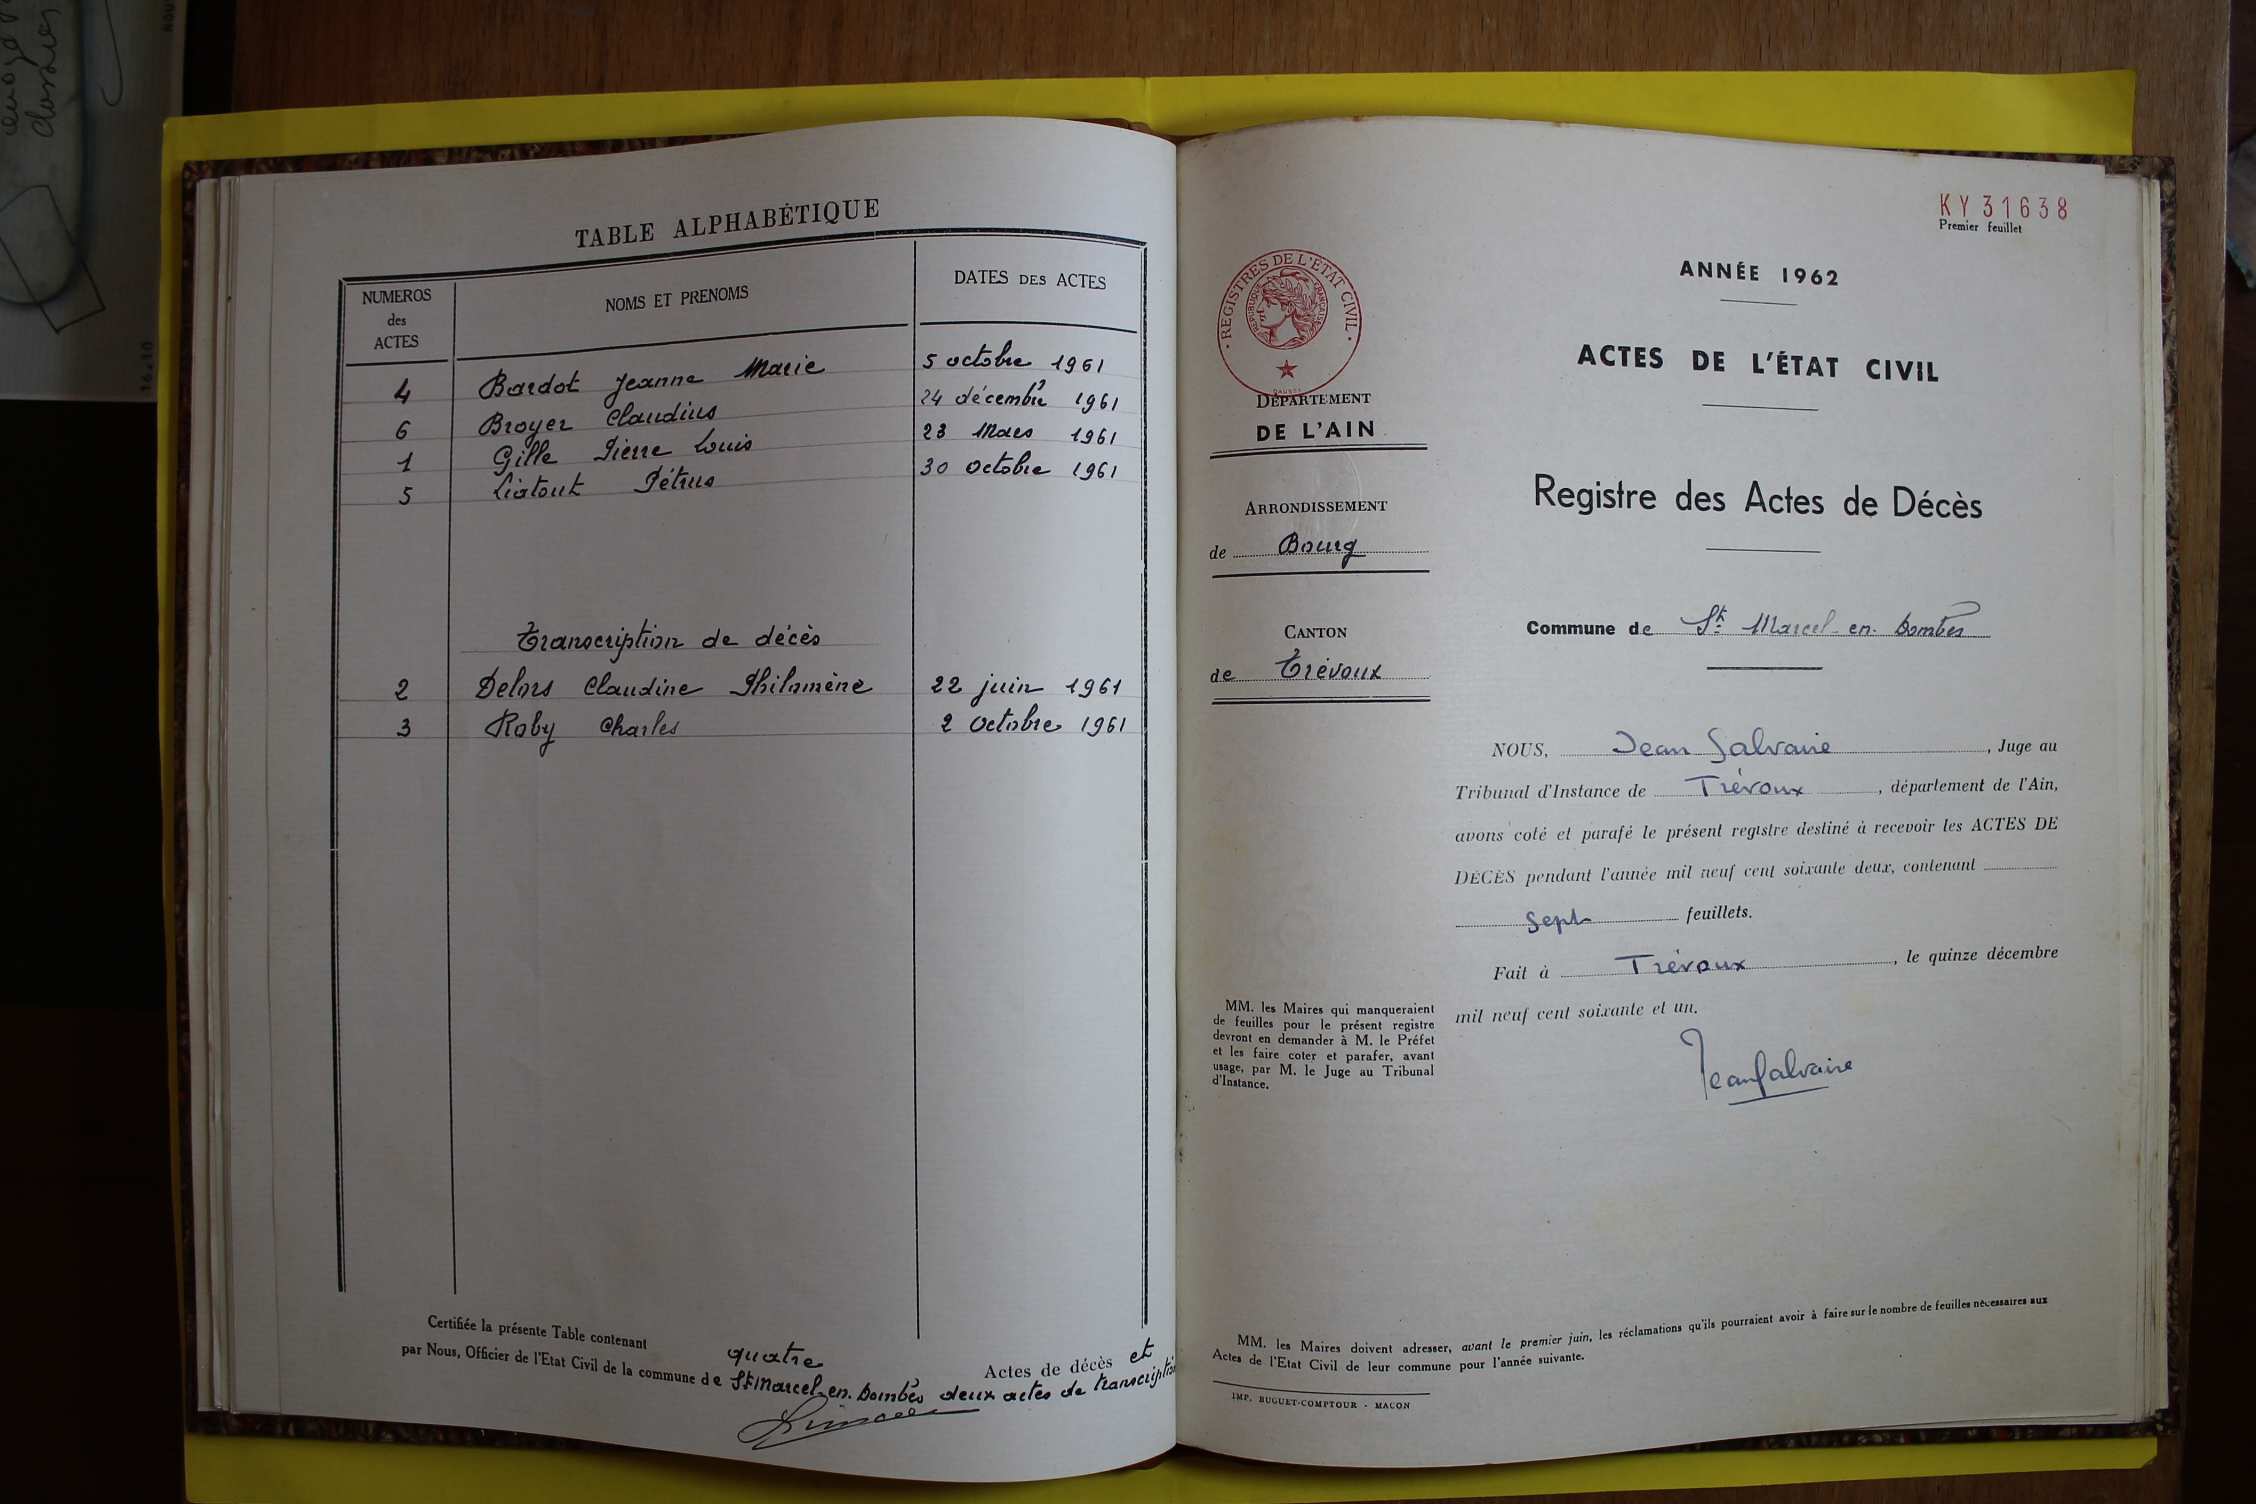 TABLE ALPHABÉTIQUE
NUMEROS des ACTES
NOMS ET PRENOMS
DATES DES ACTES
4 Bardot Jeanne Marie 5 octobre 1961
6 Broyer Claudius 24 décembre 1961
1 Gille Pierre Louis 23 Mars 1961
5 Liatout Pétrus 30 octobre 1961
Transcription de décès
2 Delors Claudine Philomène 22 juin 1961
3 Roby Charles 2 octobre 1961
Certifiée la présente Table contenant quatre Actes de décès et
par Nous, Officier de l'Etat Civil de la commune de St Marcel-en-Dombes deux actes de transcription
KY 31638
Premier feuillet
REGISTRES DE L'ÉTAT CIVIL
RÉPUBLIQUE FRANÇAISE
DÉPARTEMENT
DE L'AIN
ARRONDISSEMENT
de Bourg
CANTON
de Trévoux
MM. les Maires qui manqueraient
de feuilles pour le présent registre
devront en demander à M. le Préfet
et les faire coter et parafer, avant
usage, par M. le Juge au Tribunal
d'Instance.
ANNÉE 1962
ACTES DE L'ÉTAT CIVIL
Registre des Actes de Décès
Commune de St Marcel-en-Dombes
NOUS, Jean Salvaire, Juge au
Tribunal d'Instance de Trévoux, département de l'Ain,
avons coté et parafé le présent registre destiné à recevoir les ACTES DE
DÉCÈS pendant l'année mil neuf cent soixante deux, contenant
sept feuillets.
Fait à Trévoux, le quinze décembre
mil neuf cent soixante et un.
Jean Salvaire
MM. les Maires doivent adresser, avant le premier juin, les réclamations qu'ils pourraient avoir à faire sur le nombre de feuilles nécessaires aux
Actes de l'Etat Civil de leur commune pour l'année suivante.
IMP. BUGUET-COMPTOUR - MACON